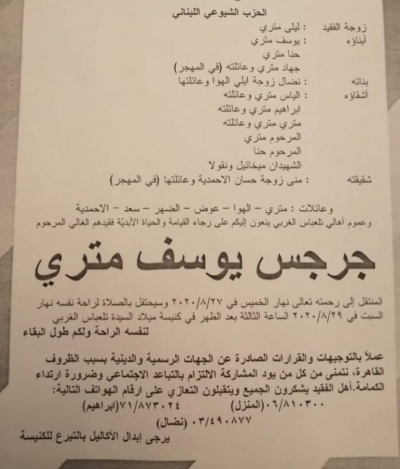 الحزب الشيوعي اللبناني
زوجة الفقيد : ليلى متري
أبناؤه : يوسف متري
حنا متري
جهاد متري وعائلته (في المهجر)
بناته : نضال زوجة ايلي الهوا وعائلتها
أشقاؤه : الياس متري وعائلته
ابراهيم متري وعائلته
متري متري وعائلته
المرحوم متري
المرحوم حنا
الشهيدان ميخائيل ونقولا
شقيقته : منى زوجة حسان الاحمدية وعائلتها (في المهجر)
وعائلات : متري – الهوا – عوض – الضهر – سعد – الاحمدية
وعموم أهالي تلعباس الغربي ينعون إليكم على رجاء القيامة والحياة الأبدية فقيدهم الغالي المرحوم
جرجس يوسف متري
المنتقل إلى رحمته تعالى نهار الخميس في ٢٠٢٠/٨/٢٧ وسيحتفل بالصلاة لراحة نفسه نهار
السبت في ٢٠٢٠/٨/٢٩ الساعة الثالثة بعد الظهر في كنيسة ميلاد السيدة تلعباس الغربي
لنفسه الراحة ولكم طول البقاء
عملاً بالتوجيهات والقرارات الصادرة عن الجهات الرسمية والدينية بسبب الظروف
القاهرة، نتمنى من كل من يود المشاركة الالتزام بالتباعد الاجتماعي وضرورة ارتداء
الكمامة. أهل الفقيد يشكرون الجميع ويتقبلون التعازي على ارقام الهواتف التالية:
٠٦/٨١٠٣٠٠ (المنزل) ٧١/٨٧٣٠٢٤ (ابراهيم)
٠٣/٤٩٠٨٧٧ (نضال)
يرجى إبدال الأكاليل بالتبرع للكنيسة